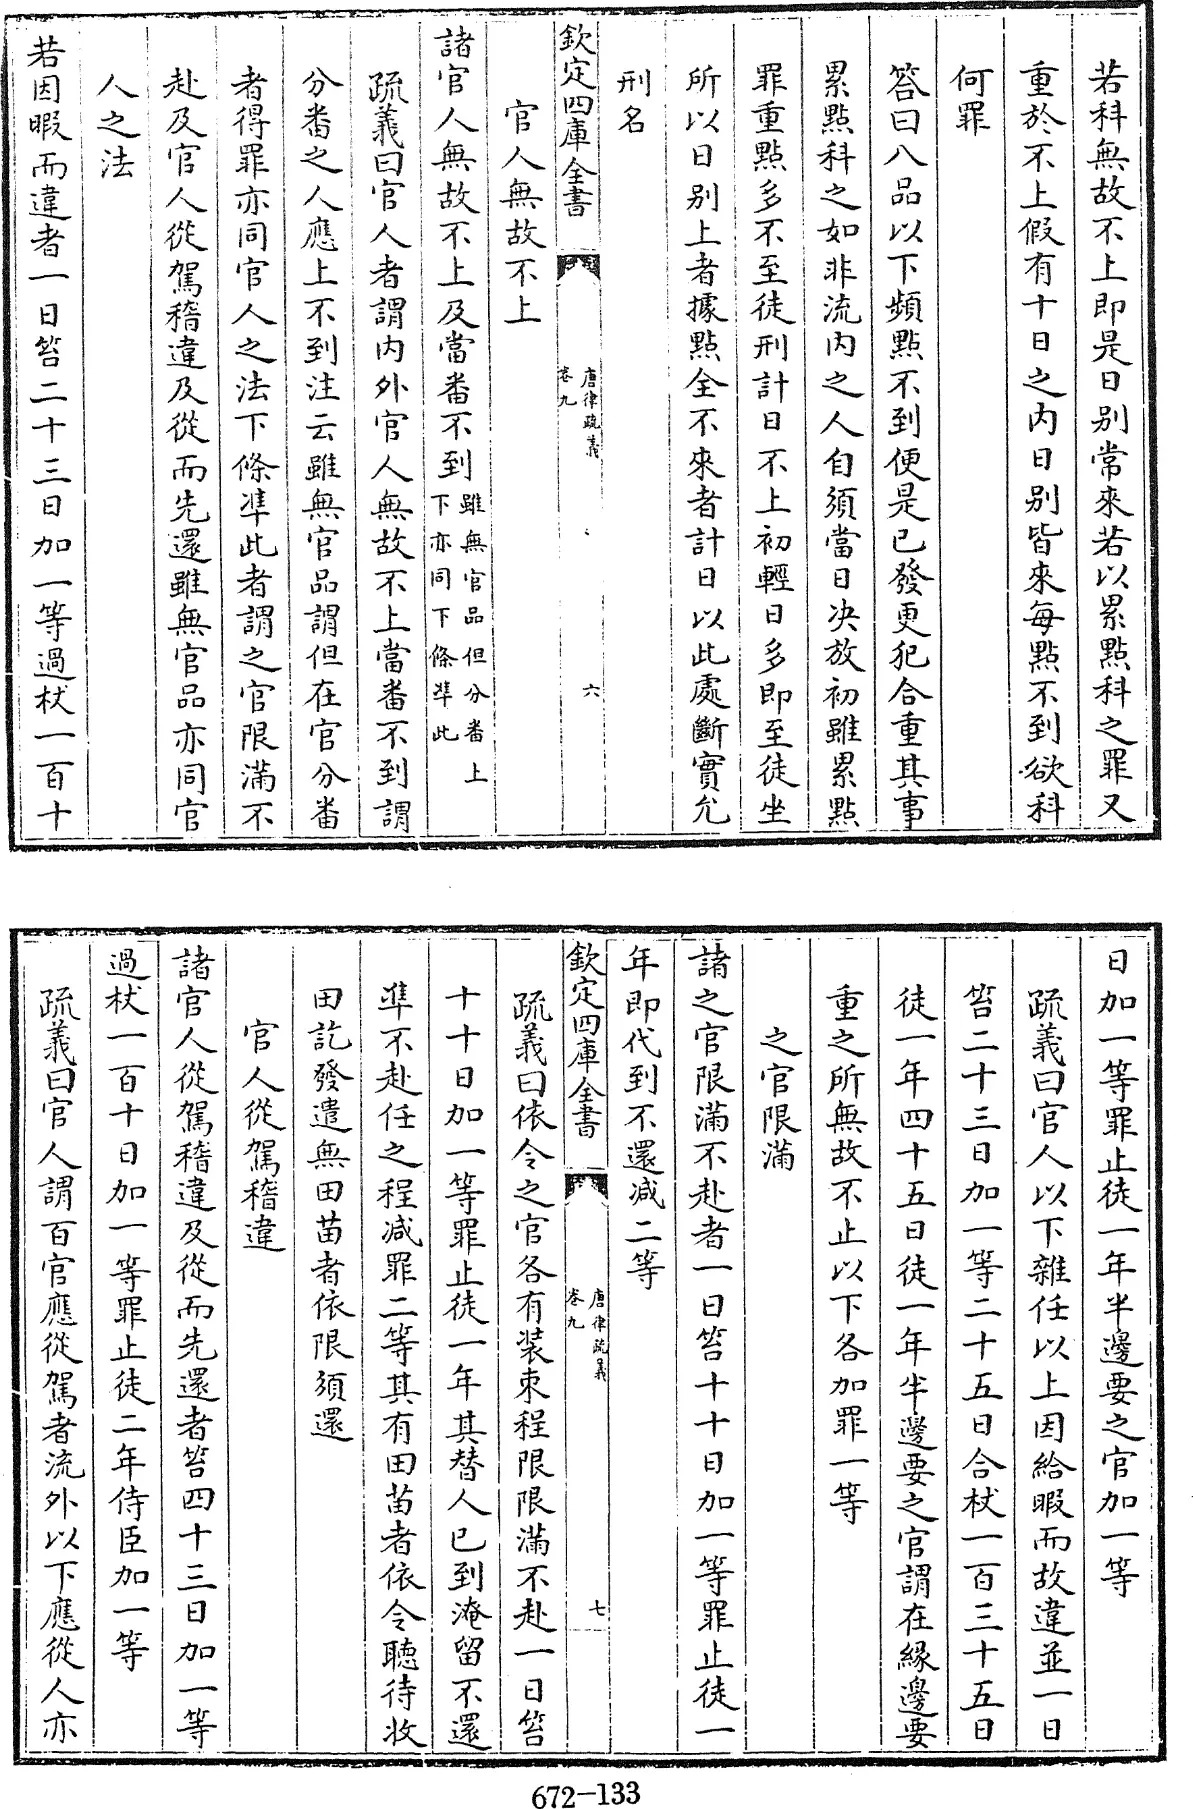 若科無故不上即是日別常來若以累點科之罪又
重於不上假有十日之内日別皆來每點不到欲科
何罪
答曰八品以下頻點不到便是已發更犯合重其事
累點科之如非流内之人自須當日决放初雖累點
罪重點多不至徒刑計日不上初輕日多即至徒坐
所以日别上者據點全不來者計日以此處斷實允
刑名
欽定四庫全書
唐律疏義
卷九
六
官人無故不上
諸官人無故不上及當番不到雖無官品但分番上
下亦同下條準此
疏義曰官人者謂内外官人無故不上當番不到謂
分番之人應上不到注云雖無官品謂但在官分番
者得罪亦同官人之法下條準此者謂之官限滿不
赴及官人從駕稽違及從而先還雖無官品亦同官
人之法
若因暇而違者一日笞二十三日加一等過杖一百十
日加一等罪止徒一年半邊要之官加一等
疏義曰官人以下雜任以上因給暇而故違並一日
笞二十三日加一等二十五日合杖一百三十五日
徒一年四十五日徒一年半邊要之官謂在緣邊要
重之所無故不止以下各加罪一等
之官限滿
諸之官限滿不赴者一日笞十十日加一等罪止徒一
年即代到不還减二等
欽定四庫全書
唐律疏義
卷九
七
疏義曰依令之官各有装束程限限滿不赴一日笞
十十日加一等罪止徒一年其替人已到淹留不還
準不赴任之程减罪二等其有田苗者依令聽待收
田訖發遣無田苗者依限須還
官人從駕稽違
諸官人從駕稽違及從而先還者笞四十三日加一等
過杖一百十日加一等罪止徒二年侍臣加一等
疏義曰官人謂百官應從駕者流外以下應從人亦
672-133